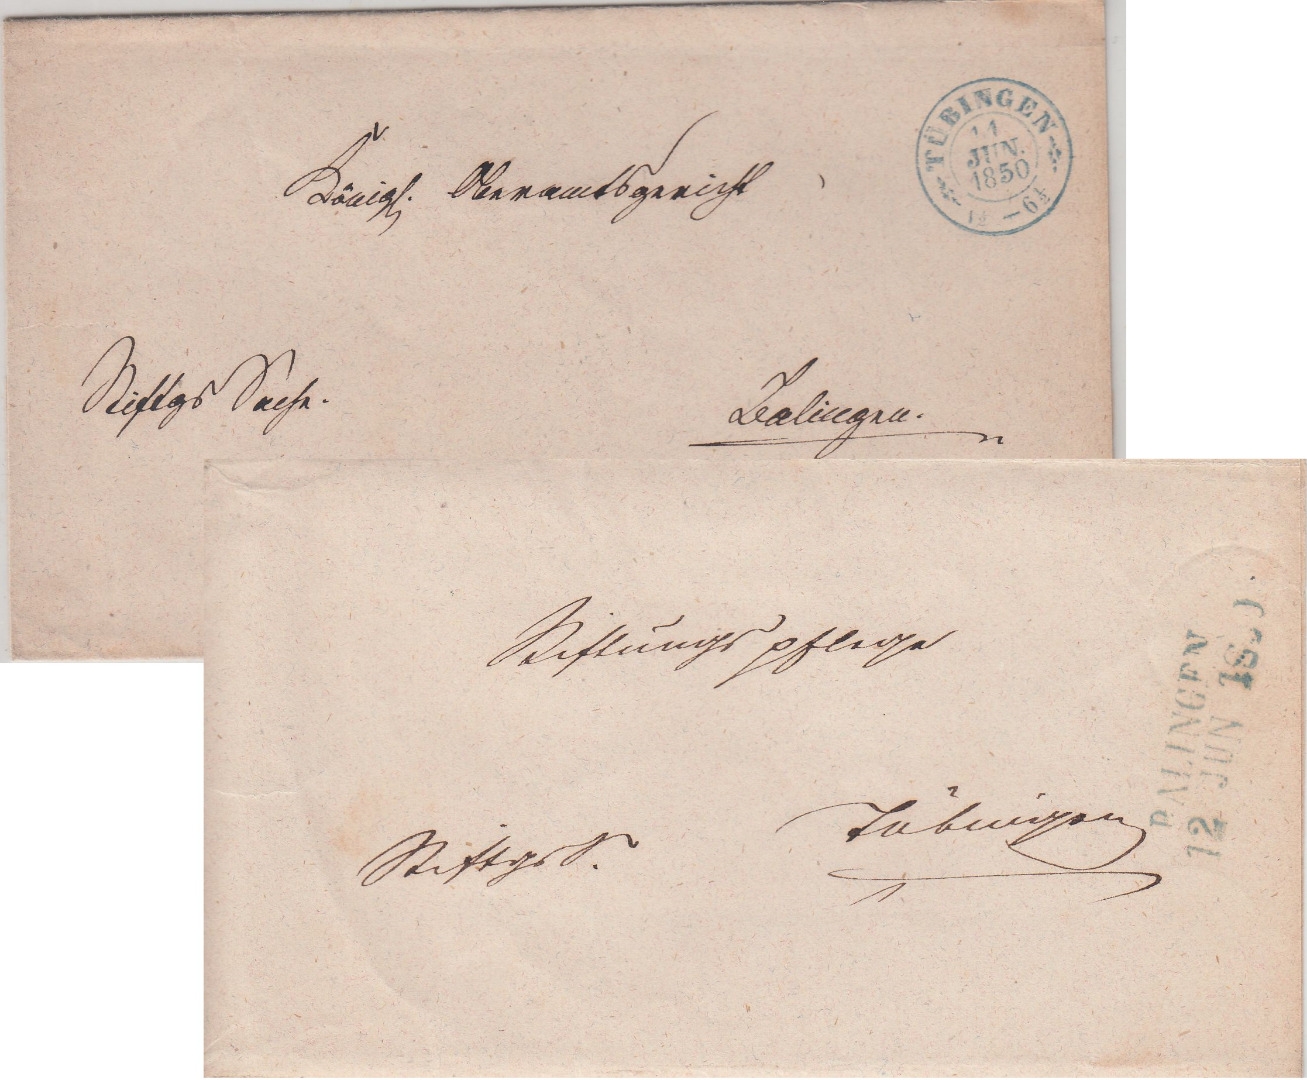 TÜBINGEN
11
JUN.
1850
1½ — 6½
Königl. Oberamtsgericht
Stiftgs Sache.
Balingen.
Stiftungspflege
BALINGEN
12 JUN 18
Tübingen
Stiftgs S.